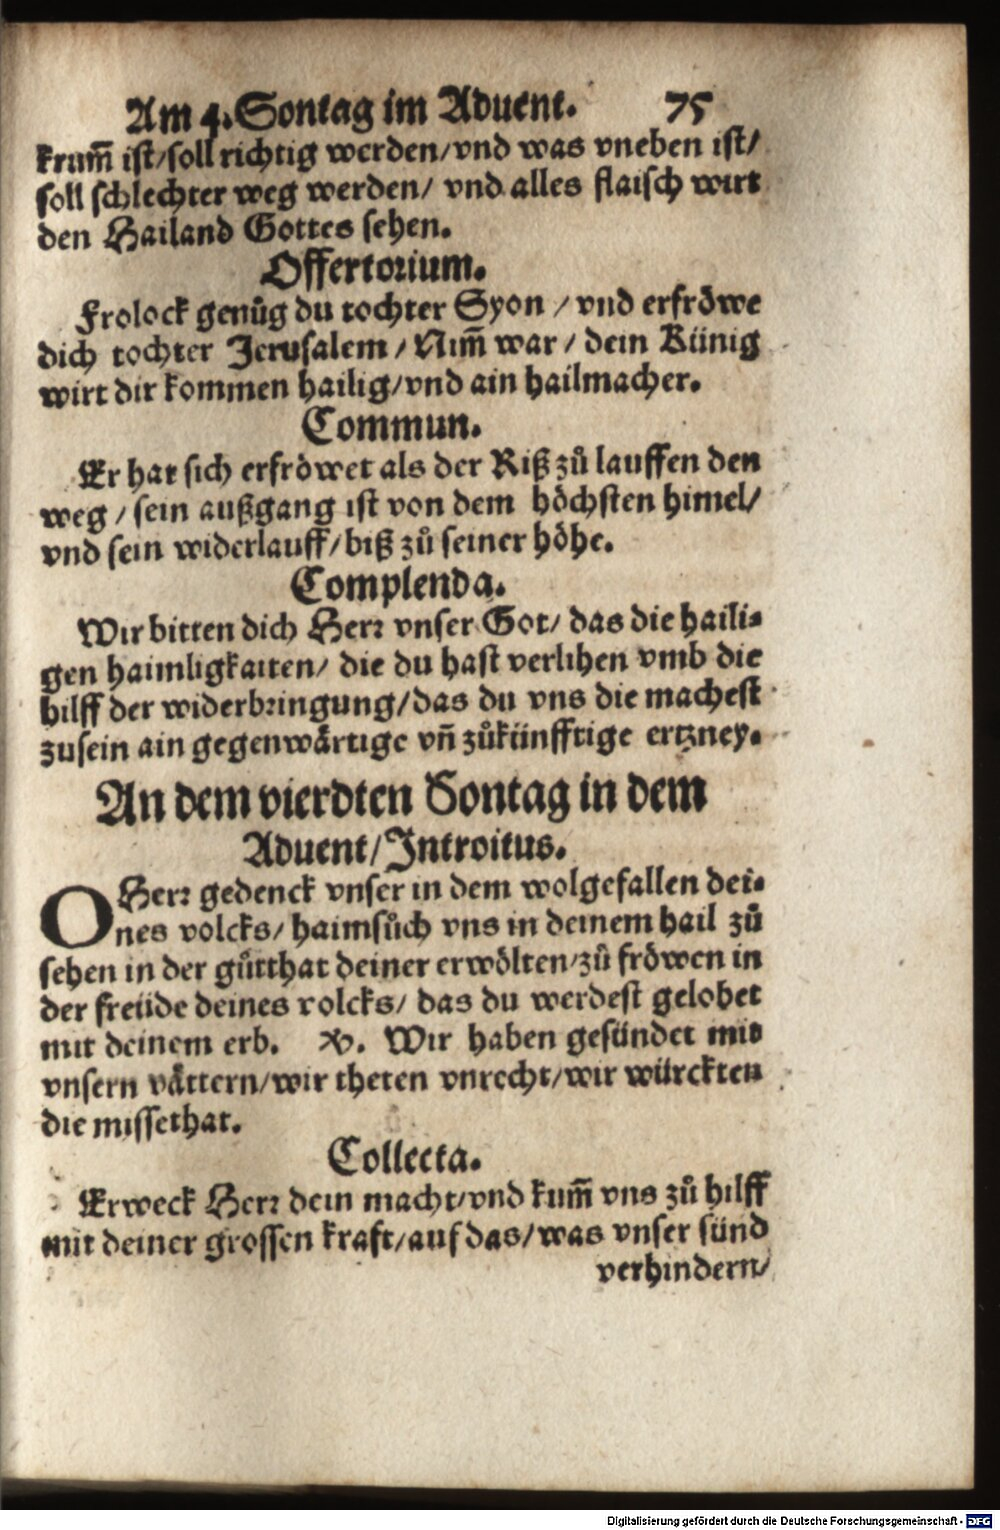 Am 4. Sontag im Aduent. 75
krum̄ ist/soll richtig werden/vnd was vneben ist/
soll schlechter weg werden/ vnd alles flaisch wirt
den Hailand Gottes sehen.
Offertorium.
Frolock genůg du tochter Syon / vnd erfröwe
dich tochter Jerusalem / Nim̄ war / dein Künig
wirt dir kommen hailig/vnd ain hailmacher.
Commun.
Er hat sich erfröwet als der Riß zů lauffen den
weg / sein außgang ist von dem höchsten himel/
vnd sein widerlauff/biß zů seiner höhe.
Complenda.
Wir bitten dich Herr vnser Got/ das die haili-
gen haimligkaiten/ die du hast verlihen vmb die
hilff der widerbringung/das du vns die machest
zusein ain gegenwärtige vn̄ zůkünfftige ertzney.
An dem vierdten Sontag in dem
Aduent/Introitus.
O Herr gedenck vnser in dem wolgefallen dei-
nes volcks/ haimsůch vns in deinem hail zů
sehen in der gůtthat deiner erwölten/zů fröwen in
der freüde deines volcks/ das du werdest gelobet
mit deinem erb. V. Wir haben gesündet mit
vnsern vättern/wir theten vnrecht/wir würckten
die missethat.
Collecta.
Erweck Herr dein macht/vnd kum̄ vns zů hilff
mit deiner grossen kraft/auf das/was vnser sünd
verhindern/
Digitalisierung gefördert durch die Deutsche Forschungsgemeinschaft - DFG